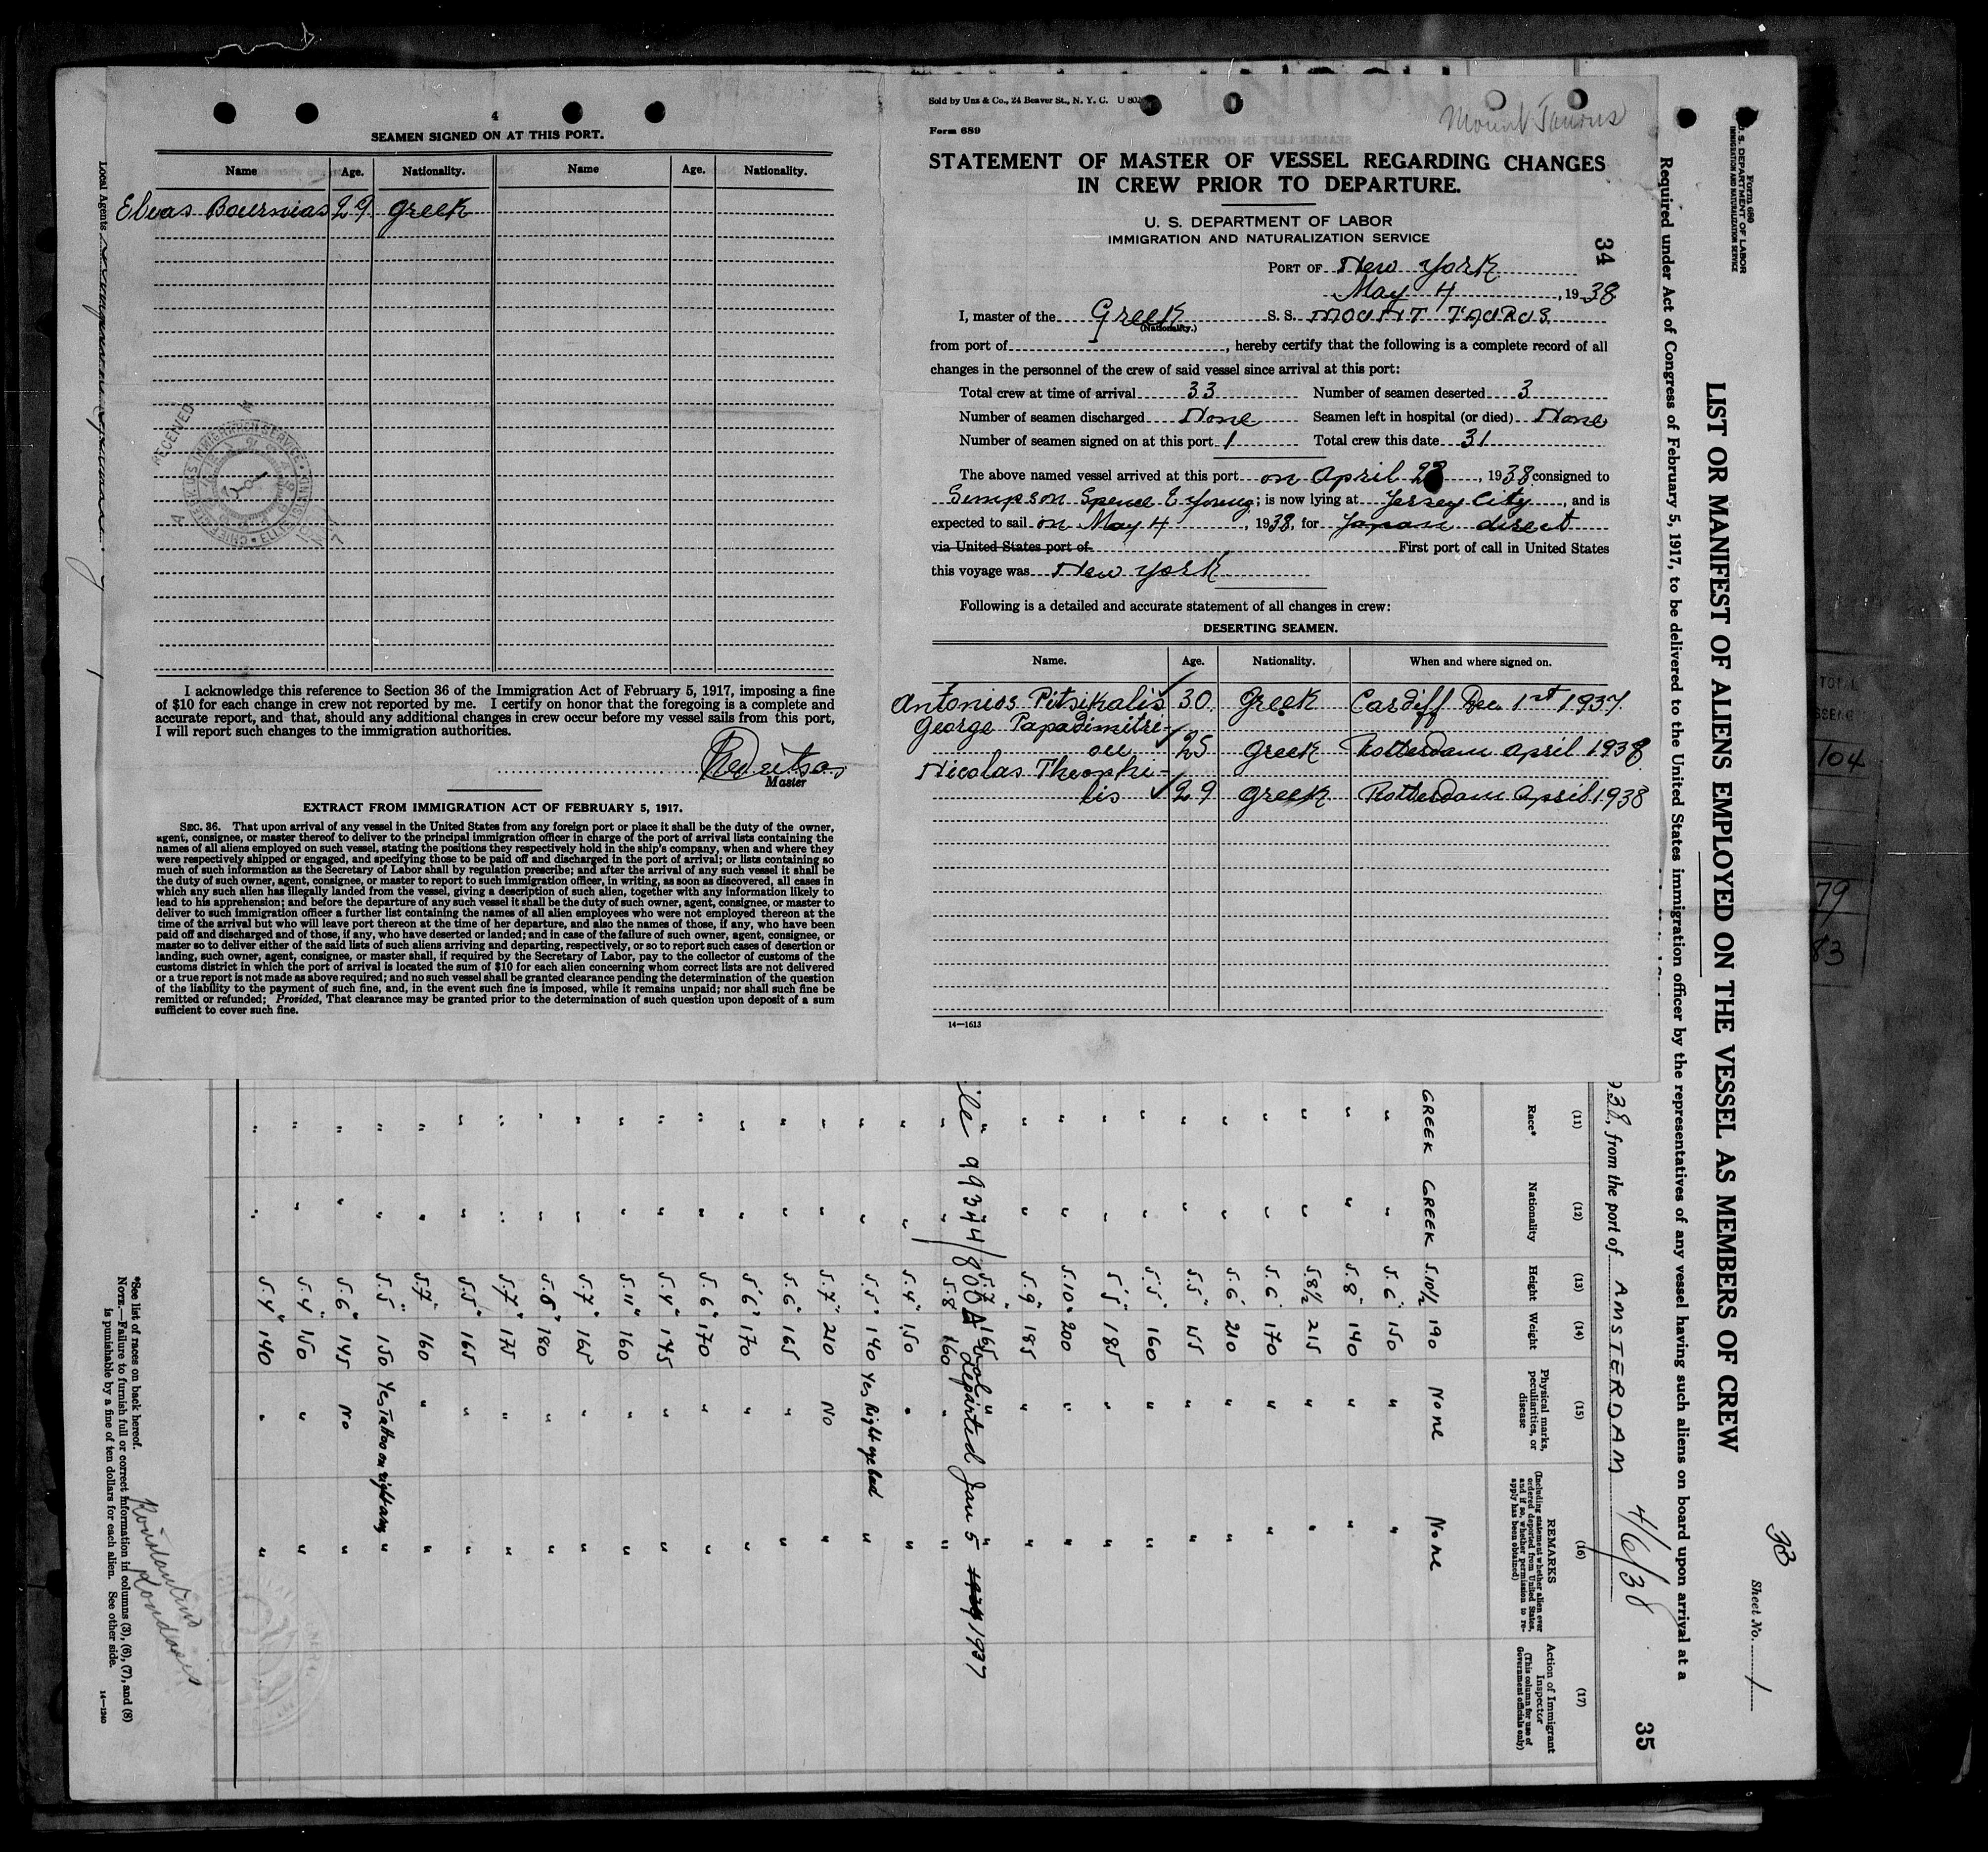 4
SEAMEN SIGNED ON AT THIS PORT.
Name Age. Nationality. Name Age. Nationality.
29 Greek
Local Agents
RECEIVED
I acknowledge this reference to Section 36 of the Immigration Act of February 5, 1917, imposing a fine
of $10 for each change in crew not reported by me. I certify on honor that the foregoing is a complete and
accurate report, and that, should any additional changes in crew occur before my vessel sails from this port,
I will report such changes to the immigration authorities.
Master
EXTRACT FROM IMMIGRATION ACT OF FEBRUARY 5, 1917.
SEC. 36. That upon arrival of any vessel in the United States from any foreign port or place it shall be the duty of the owner,
agent, consignee, or master thereof to deliver to the principal immigration officer in charge of the port of arrival lists containing the
names of all aliens employed on such vessel, stating the positions they respectively hold in the ship's company, when and where they
were respectively shipped or engaged, and specifying those to be paid off and discharged in the port of arrival; or lists containing so
much of such information as the Secretary of Labor shall by regulation prescribe; and after the arrival of any such vessel it shall be
the duty of such owner, agent, consignee, or master to report to such immigration officer, in writing, as soon as discovered, all cases in
which any such alien has illegally landed from the vessel, giving a description of such alien, together with any information likely to
lead to his apprehension; and before the departure of any such vessel it shall be the duty of such owner, agent, consignee, or master to
deliver to such immigration officer a further list containing the names of all alien employees who were not employed thereon at the
time of the arrival but who will leave port thereon at the time of her departure, and also the names of those, if any, who have been
paid off and discharged and of those, if any, who have deserted or landed; and in case of the failure of such owner, agent, consignee, or
master so to deliver either of the said lists of such aliens arriving and departing, respectively, or so to report such cases of desertion or
landing, such owner, agent, consignee, or master shall, if required by the Secretary of Labor, pay to the collector of customs of the
customs district in which the port of arrival is located the sum of $10 for each alien concerning whom correct lists are not delivered
or a true report is not made as above required; and no such vessel shall be granted clearance pending the determination of the question
of the liability to the payment of such fine, and, in the event such fine is imposed, while it remains unpaid; nor shall such fine be
remitted or refunded; Provided, That clearance may be granted prior to the determination of such question upon deposit of a sum
sufficient to cover such fine.
Sold by Unz & Co., 24 Beaver St., N. Y. C.
Mount Taurus
Form 689
STATEMENT OF MASTER OF VESSEL REGARDING CHANGES
IN CREW PRIOR TO DEPARTURE.
U. S. DEPARTMENT OF LABOR
IMMIGRATION AND NATURALIZATION SERVICE
34
PORT OF New York
May 4, 1938
I, master of the Greek S. S. MOUNT TAURUS
(Nationality.)
from port of , hereby certify that the following is a complete record of all
changes in the personnel of the crew of said vessel since arrival at this port:
Total crew at time of arrival 33 Number of seamen deserted 3
Number of seamen discharged None Seamen left in hospital (or died) None
Number of seamen signed on at this port 1 Total crew this date 31
The above named vessel arrived at this port on April , 1938 consigned to
Simpson Spence & Young; is now lying at Jersey City, and is
expected to sail on May 4, 1938, for Japan direct
via United States port of First port of call in United States
this voyage was New York
Following is a detailed and accurate statement of all changes in crew:
DESERTING SEAMEN.
Name. Age. Nationality. When and where signed on.
Antonios Pitsikalis 30 Greek Cardiff Dec 1st 1937
George Papadimitri-
ou 25 Greek Rotterdam April 1938
Nicolas Theophi-
lis 29 Greek Rotterdam April 1938
14—1613
Form 680
U. S. DEPARTMENT OF LABOR
IMMIGRATION AND NATURALIZATION SERVICE
Sheet No. 1
LIST OR MANIFEST OF ALIENS EMPLOYED ON THE VESSEL AS MEMBERS OF CREW
Required under Act of Congress of February 5, 1917, to be delivered to the United States immigration officer by the representatives of any vessel having such aliens on board upon arrival at a
938, from the port of AMSTERDAM 4/6/38
35
(11) (12) (13) (14) (15) (16) (17)
Race* Nationality Height Weight Physical marks, peculiarities, or disease REMARKS (Including statement whether alien ever ordered deported from United States, and if so, whether permission to reapply has been obtained) Action of Immigrant Inspector (This column for use of Government officials only)
GREEK GREEK 5.10½ 190 None None
" " 5.6" 150 " "
" " 5.8" 140 " "
" " 5.8½ 215 " "
" " 5.6 170 " "
" " 5.6 210 " "
" " 5.5" 155 " "
" " 5.5" 160 " "
" " 5.5" 185 " "
" " 5.10" 200 " "
" " 5.9" 185 " "
" " 5.7 165 " "
ile 99344/800 departed Jan 5 1937
" " 5.8 160 " "
" " 5.4" 150 " "
" " 5.5" 140 Yes Right eye bad "
" " 5.7" 210 No "
" " 5.6 165 " "
" " 5.6" 170 " "
" " 5.6" 170 " "
" " 5.4" 145 " "
" " 5.11" 160 " "
" " 5.7" 165 " "
" " 5.8" 180 " "
" " 5.7" 175 " "
" " 5.5" 165 " "
" " 5.7" 160 " "
" " 5.5" 150 Yes Tattoo on right arm "
" " 5.6" 145 No "
" " 5.4" 150 " "
" " 5.4" 140 " "
*See list of races on back hereof.
NOTE.—Failure to furnish full or correct information in columns (3), (6), (7), and (8)
is punishable by a fine of ten dollars for each alien. See other side.
14—1240
104
79
83